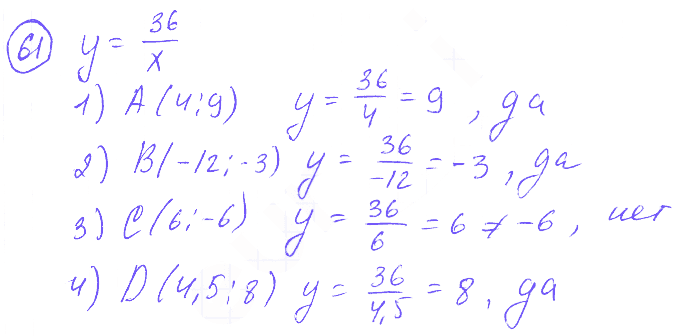 61 y = 36/x
1) A(4; 9) y = 36/4 = 9, да
2) B(-12; -3) y = 36/-12 = -3, да
3) C(6; -6) y = 36/6 = 6 ≠ -6, нет
4) D(4,5; 8) y = 36/4,5 = 8, да